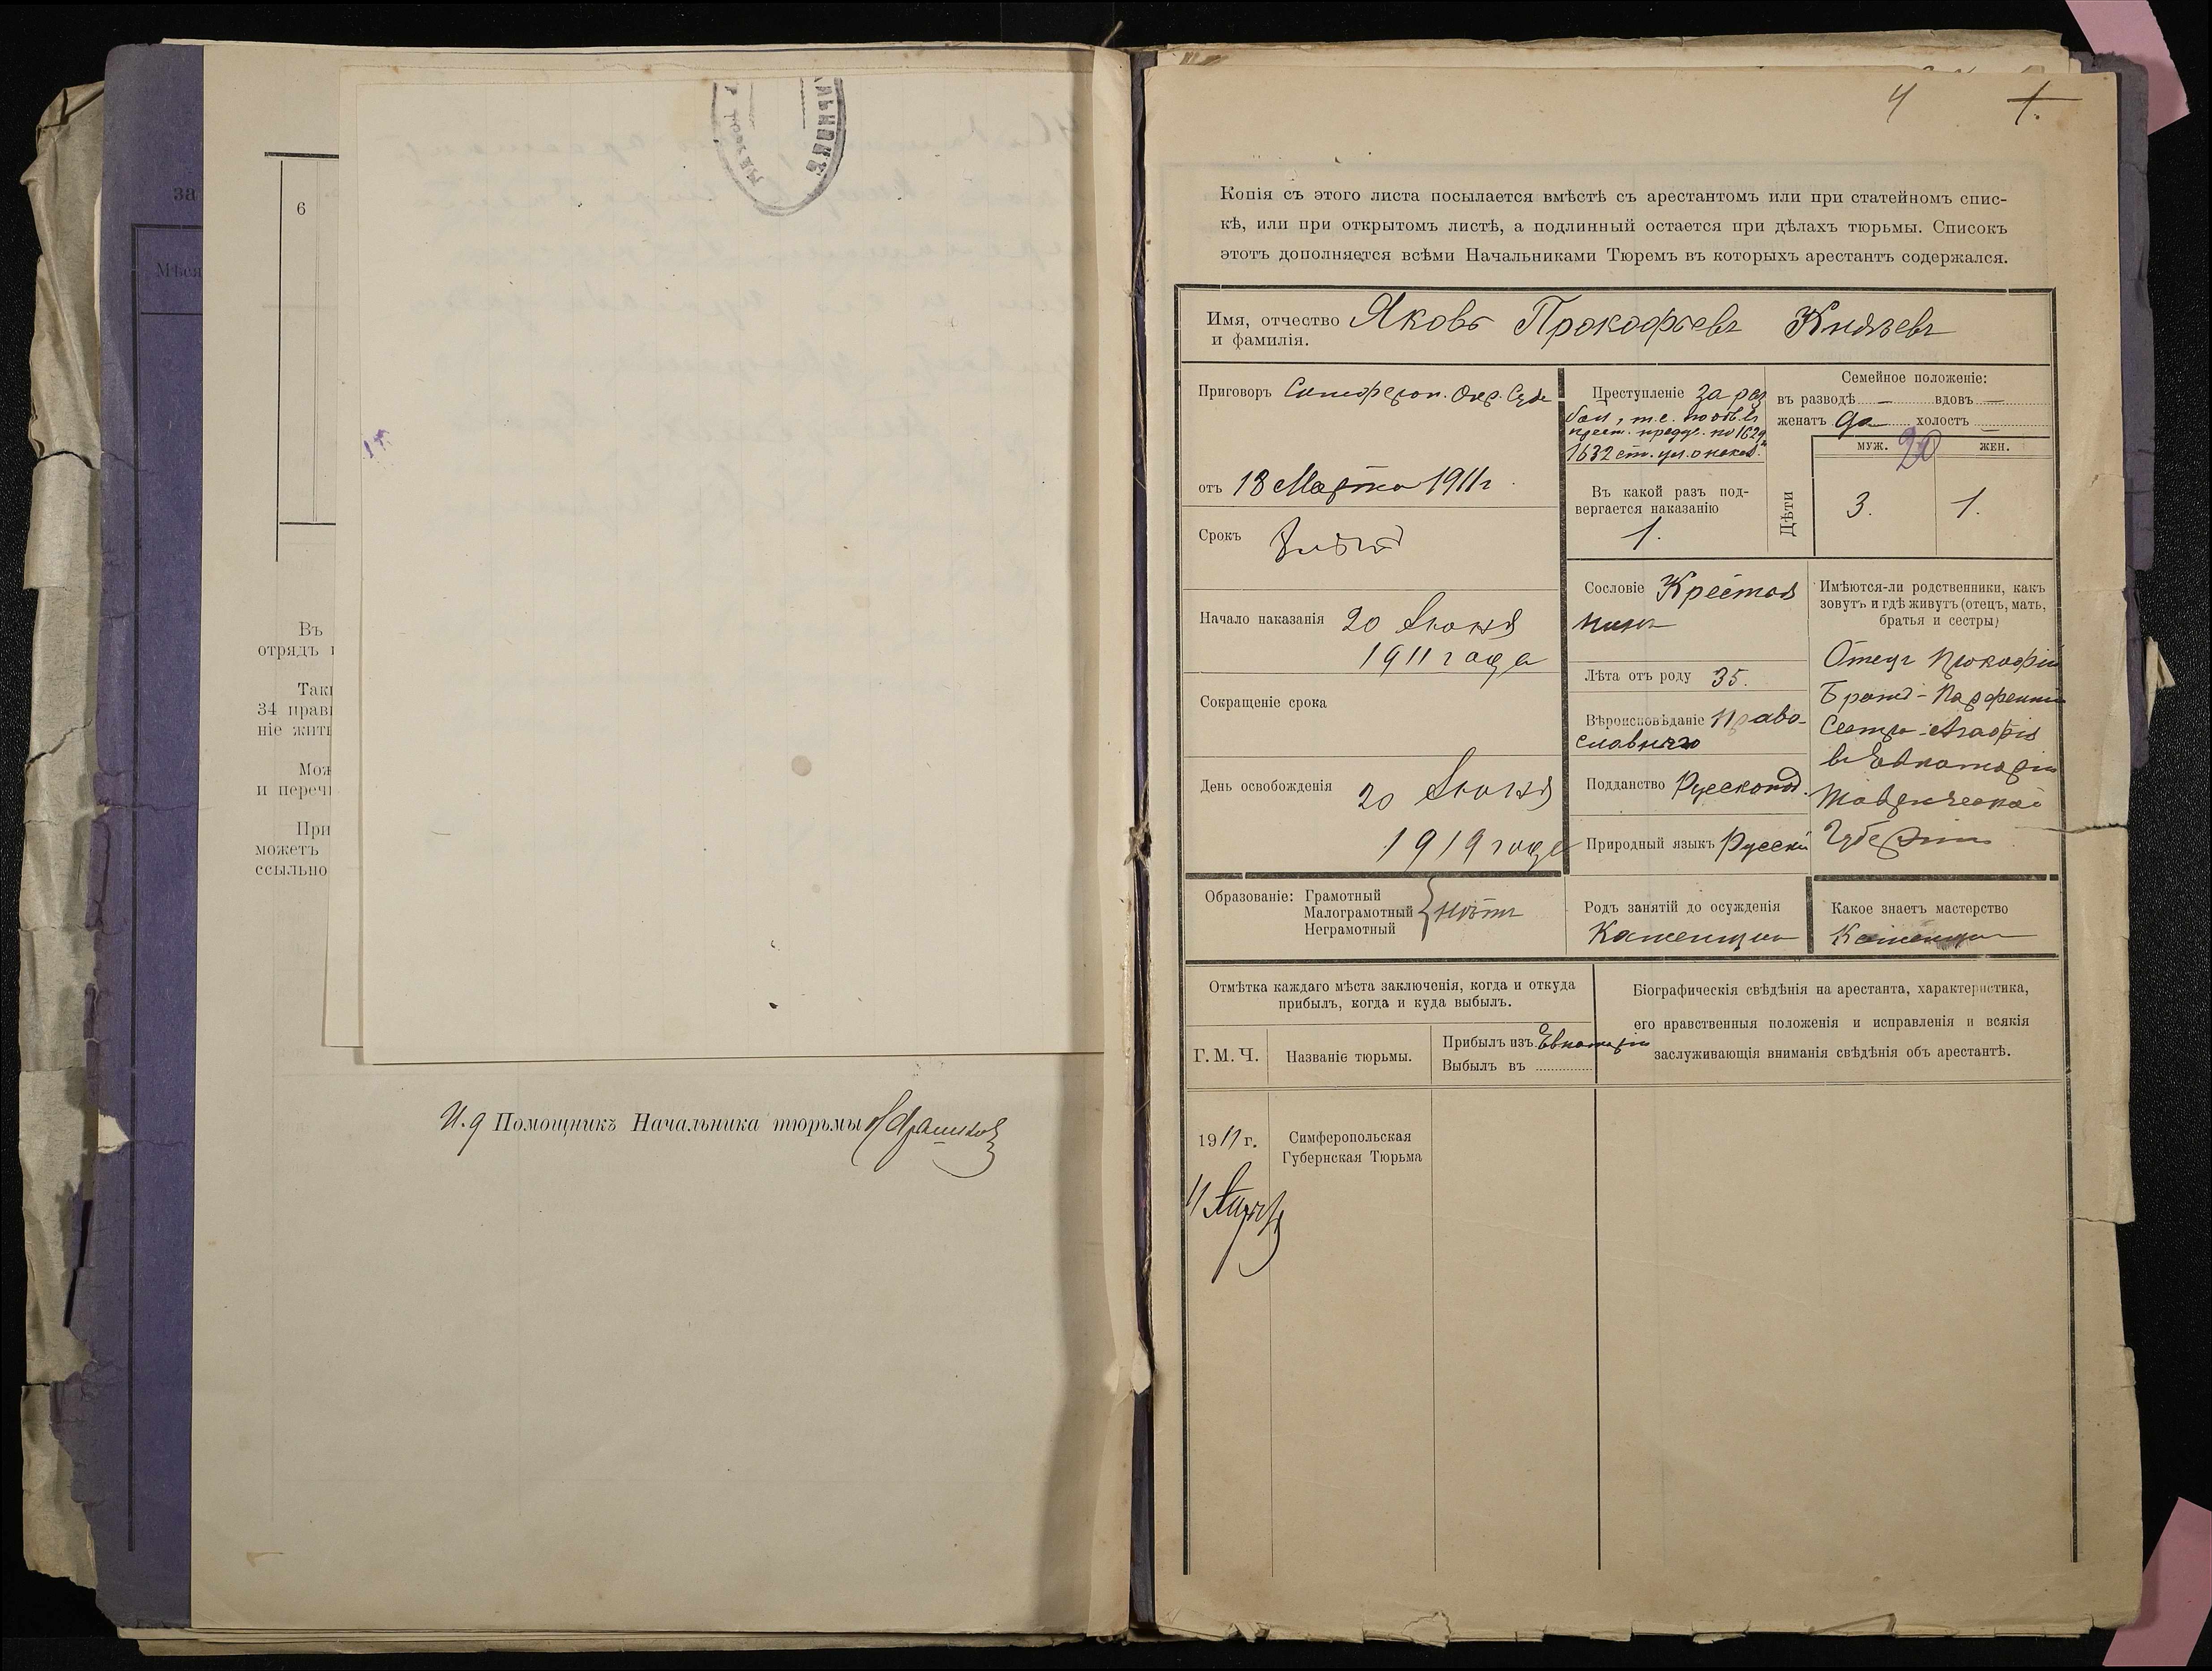 за
Мѣся
6
Въ
отрядъ
Так
34 прав
ніе жит
Мож
и переч
При
можетъ
ссыльно
И. д Помощникъ Начальника тюрьмы
4
1.
Копія съ этого листа посылается вмѣстѣ съ арестантомъ или при статейномъ спис-
кѣ, или при открытомъ листѣ, а подлинный остается при дѣлахъ тюрьмы. Списокъ
этотъ дополняется всѣми Начальниками Тюремъ въ которыхъ арестантъ содержался.
Имя, отчество Яковъ Прокофьевъ Князевъ
и фамилія.
Приговоръ Симфероп. Окр. Суда
отъ 18 Марта 1911 г.
Срокъ
Начало наказанія 20 Іюня
1911 года
Сокращеніе срока
День освобожденія 20 Іюня
1919 года
Преступленіе За раз
бой, т.е. по обв. въ
прест. предус. по 1629 и
1632 ст. ул. о наказ.
Въ какой разъ под-
вергается наказанію
1.
Семейное положеніе:
въ разводѣ — вдовъ —
женатъ да холостъ —
20
Дѣти
муж. жен.
3. 1.
Сословіе Крестья
нинъ
Лѣта отъ роду 35.
Вѣроисповѣданіе Право-
славнаго
Подданство Русскопод.
Природный языкъ Русскій
Имѣются-ли родственники, какъ
зовутъ и гдѣ живутъ (отецъ, мать,
братья и сестры)
Отецъ Прокофій
Братъ - Парфентій
Сестра - Агафія
въ Евпаторіи
Таврической
Губерніи
Образованіе: Грамотный
Малограмотный нѣтъ
Неграмотный
Родъ занятій до осужденія
Каменщик
Какое знаетъ мастерство
Каменщик
Отмѣтка каждаго мѣста заключенія, когда и откуда
прибылъ, когда и куда выбылъ.
Г. М. Ч.
Названіе тюрьмы.
Прибылъ изъ Евпаторіи
Выбылъ въ
Біографическія свѣдѣнія на арестанта, характеристика,
его нравственныя положенія и исправленія и всякія
заслуживающія вниманія свѣдѣнія объ арестантѣ.
1911 г.
11 Апрѣля
Симферопольская
Губернская Тюрьма